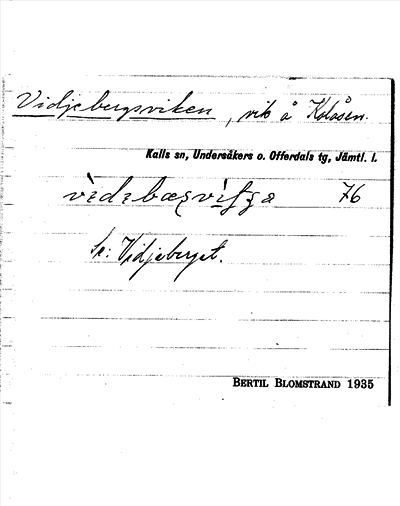 Vidjebergsviken, vik å Kolåsen.
Kalls sn, Undersåkers o. Offerdals tg, Jämtl. l.
76
Se: Vidjeberget.
BERTIL BLOMSTRAND 1935